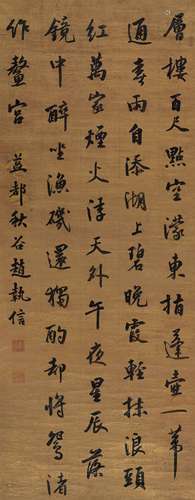 層樓百尺點空濛東指蓬壺一葦
通春雨自添湖上碧晚霞輕抹浪頭
紅萬家煙火浮天外午夜星辰落
鏡中醉坐漁磯還獨酌却將鴛渚
作鰲宮 益都秋谷趙執信